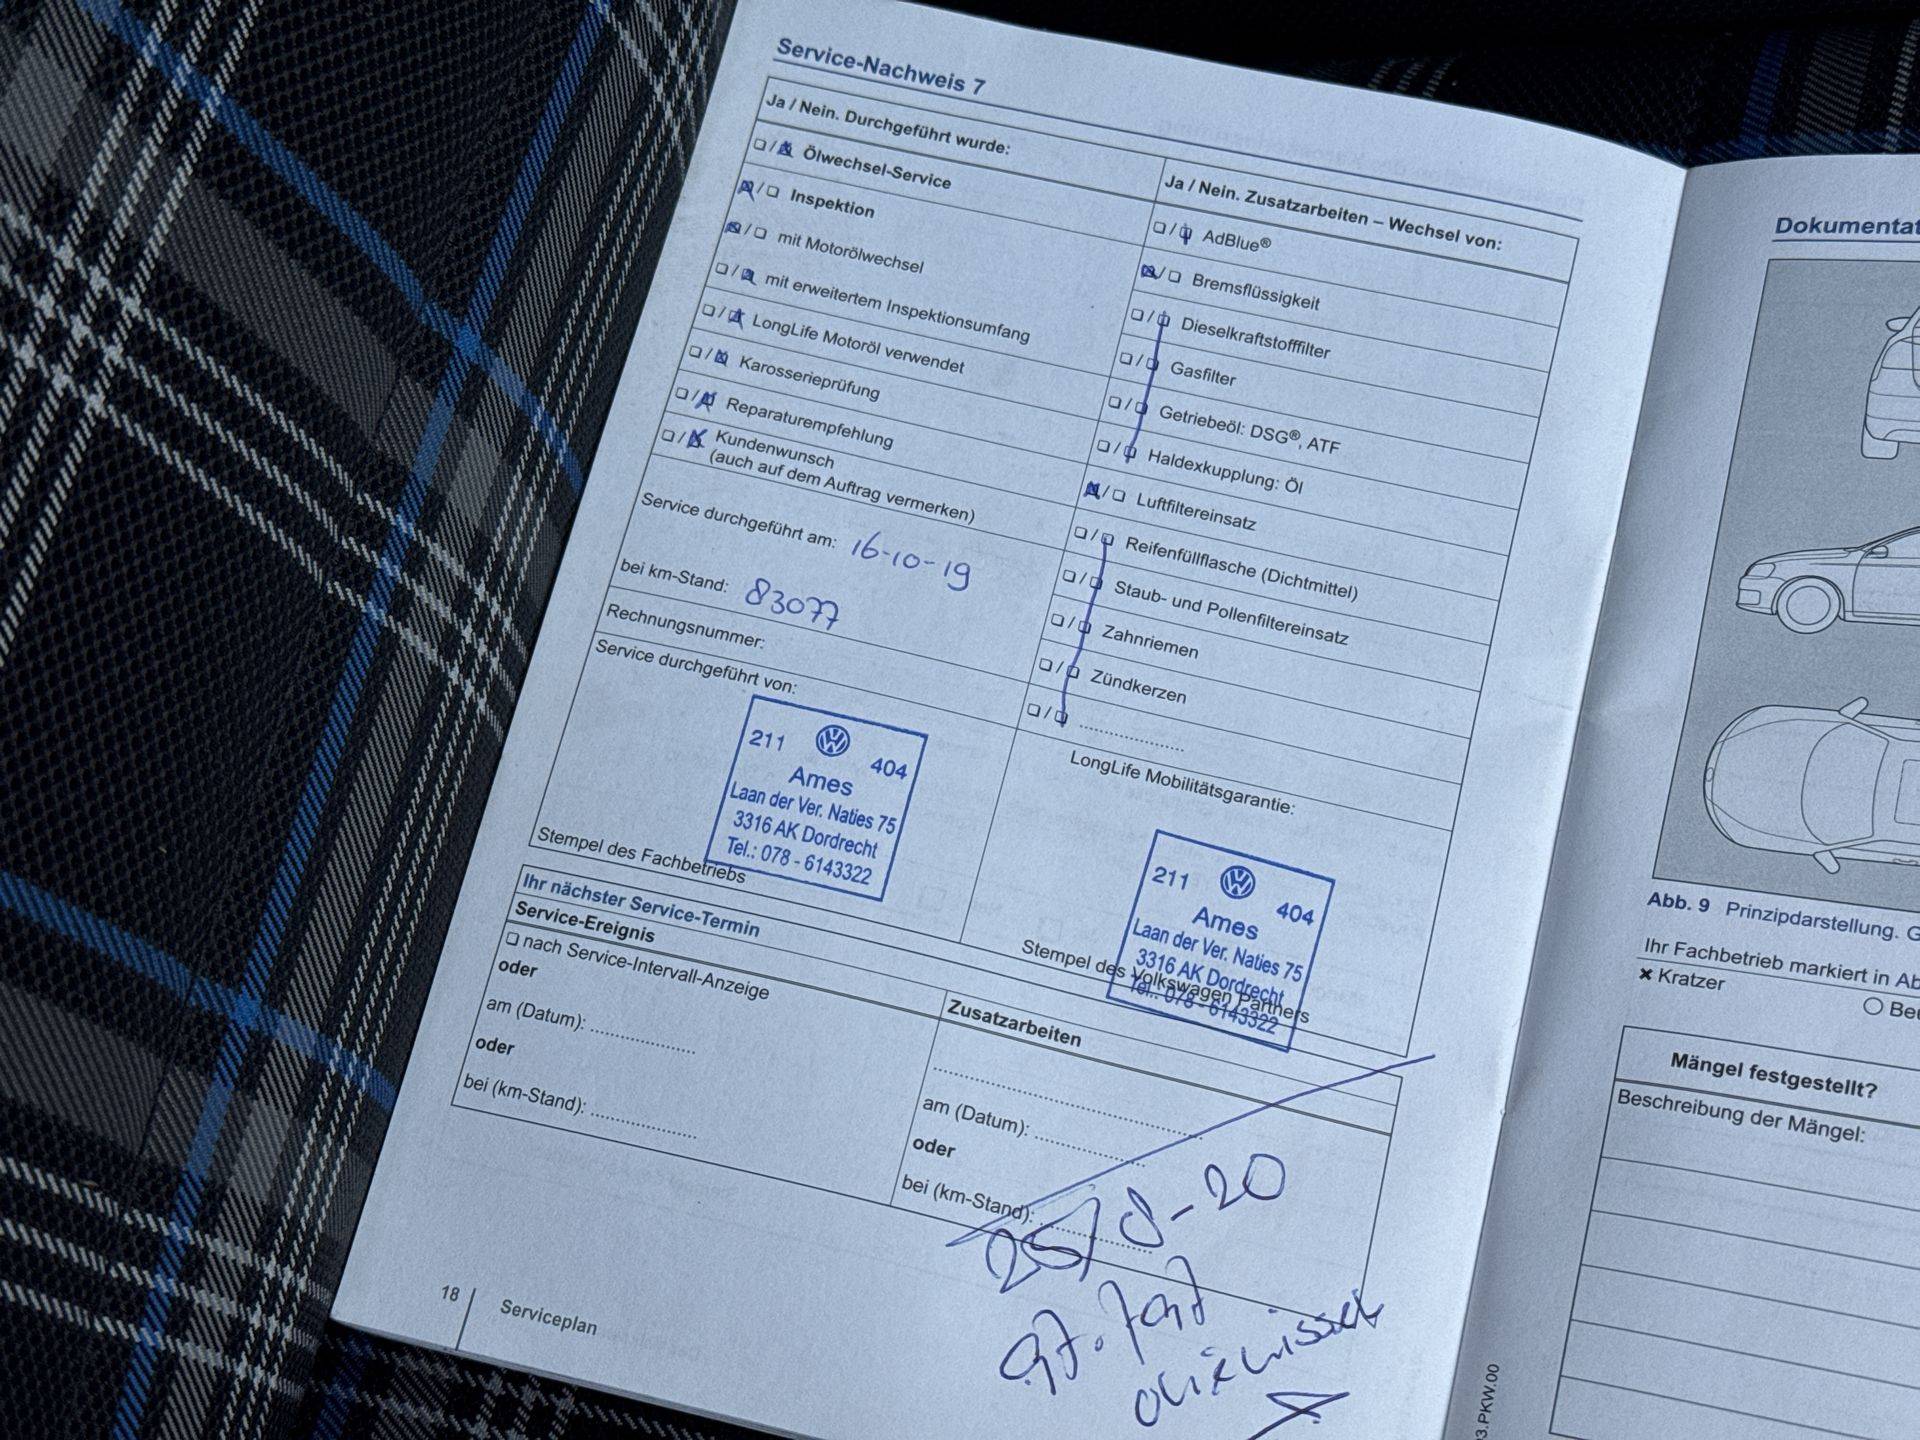 Service-Nachweis 7
Ja / Nein. Durchgeführt wurde:
Ölwechsel-Service
Inspektion
mit Motorölwechsel
mit erweitertem Inspektionsumfang
LongLife Motoröl verwendet
Karosserieprüfung
Reparaturempfehlung
Kundenwunsch
(auch auf dem Auftrag vermerken)
Service durchgeführt am: 16-10-19
bei km-Stand: 83077
Rechnungsnummer:
Service durchgeführt von:
211 404
Ames
Laan der Ver. Naties 75
3316 AK Dordrecht
Tel.: 078 - 6143322
Stempel des Fachbetriebs
Ja / Nein. Zusatzarbeiten – Wechsel von:
AdBlue®
Bremsflüssigkeit
Dieselkraftstofffilter
Gasfilter
Getriebeöl: DSG®, ATF
Haldexkupplung: Öl
Luftfiltereinsatz
Reifenfüllflasche (Dichtmittel)
Staub- und Pollenfiltereinsatz
Zahnriemen
Zündkerzen
....................
LongLife Mobilitätsgarantie:
211 404
Ames
Laan der Ver. Naties 75
3316 AK Dordrecht
Tel.: 078 - 6143322
Stempel des Volkswagen Partners
Ihr nächster Service-Termin
Service-Ereignis
nach Service-Intervall-Anzeige
oder
am (Datum): ....................
oder
bei (km-Stand): ....................
Zusatzarbeiten
am (Datum): ....................
oder
bei (km-Stand): ....................
25/8-20
97.797
18 Serviceplan
Dokumentat
Abb. 9 Prinzipdarstellung. G
Ihr Fachbetrieb markiert in Ab
Kratzer
Beu
Mängel festgestellt?
Beschreibung der Mängel:
3.PKW.00